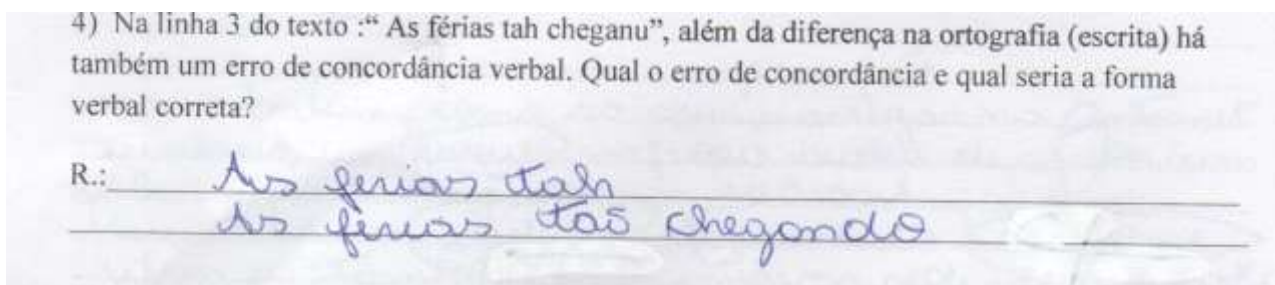 4) Na linha 3 do texto :“ As férias tah cheganu”, além da diferença na ortografia (escrita) há
também um erro de concordância verbal. Qual o erro de concordância e qual seria a forma
verbal correta?
R.: As ferias tah
As ferias taõ chegando